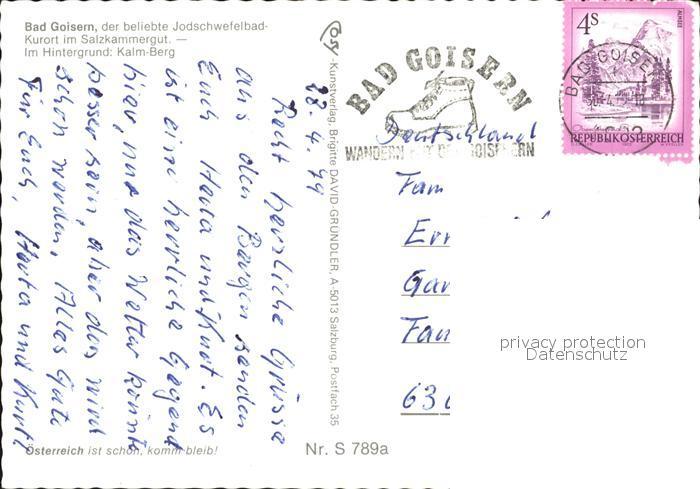 Bad Goisern, der beliebte Jodschwefelbad-
Kurort im Salzkammergut. —
Im Hintergrund: Kalm-Berg
28.4.79
Recht herzliche Grüsse
aus den Bergen senden
Euch Herta und Kurt. Es
ist eine herrliche Gegend
hier, nur das Wetter könnte
besser sein, aber das wird
schon werden, Alles Gute
für Euch, Herta und Kurt!
Österreich ist schön, komm bleibi!
Cosy-Kunstverlag, Brigitte DAVID-GRÜNDLER, A-5013 Salzburg, Postfach 35
Nr. S 789a
BAD GOISERN
WANDERN MIT DEM GOISERERN
4S
ALMSEE
REPUBLIK ÖSTERREICH
BAD GOISERN
Deutschland
Fam
Err
Gar
Fan
63
privacy protection
Datenschutz